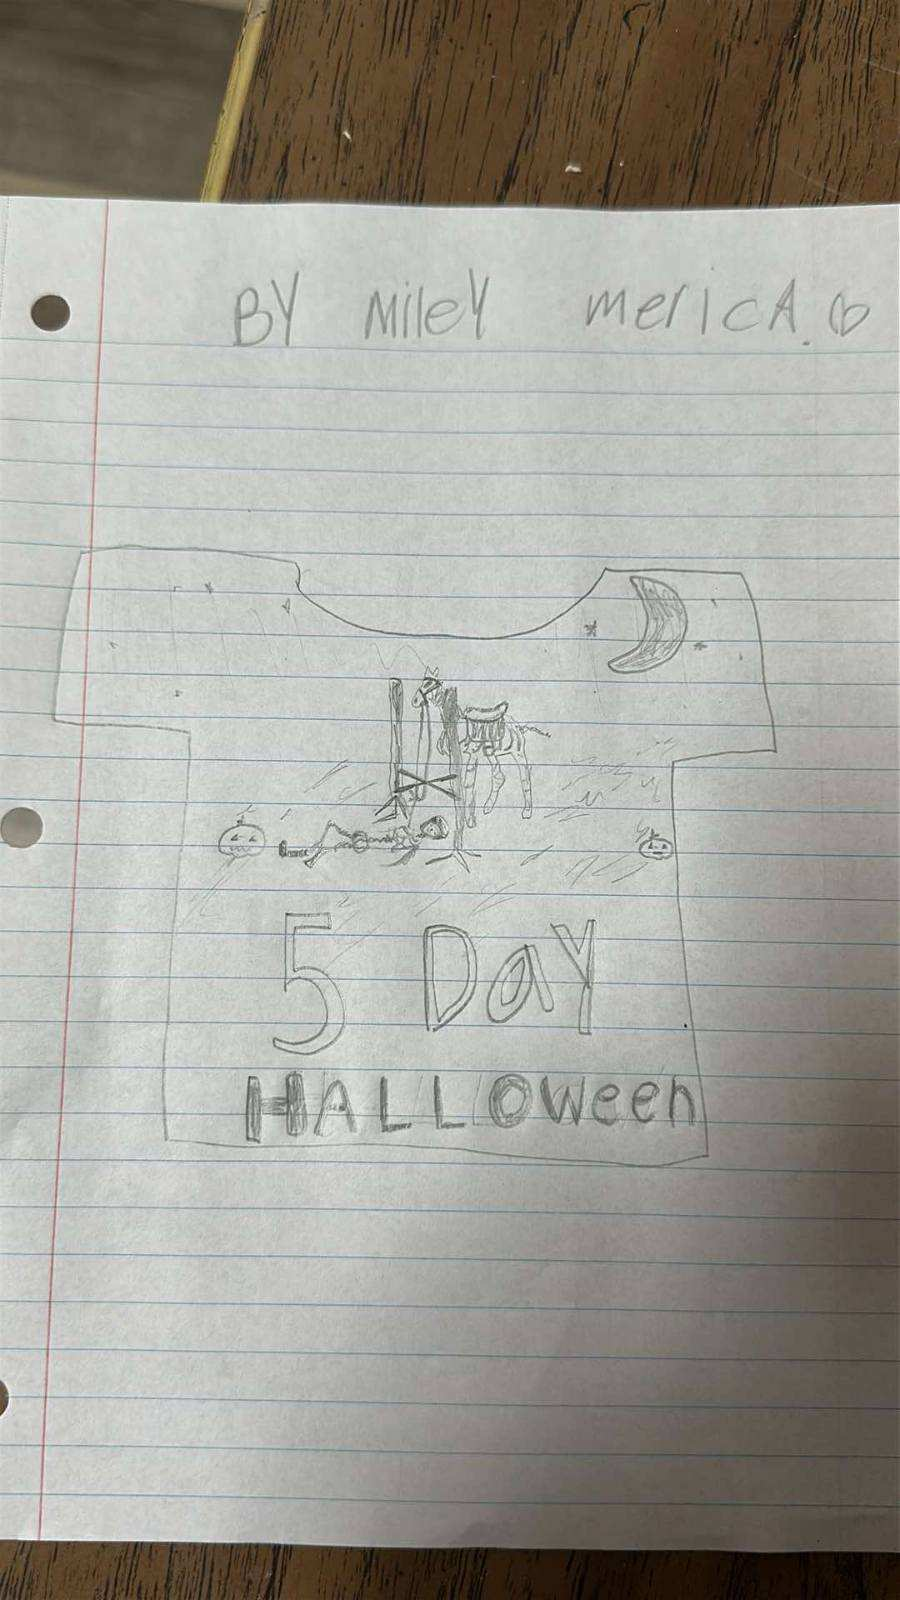 BY Miley mericA.
5 Day
HALLOween